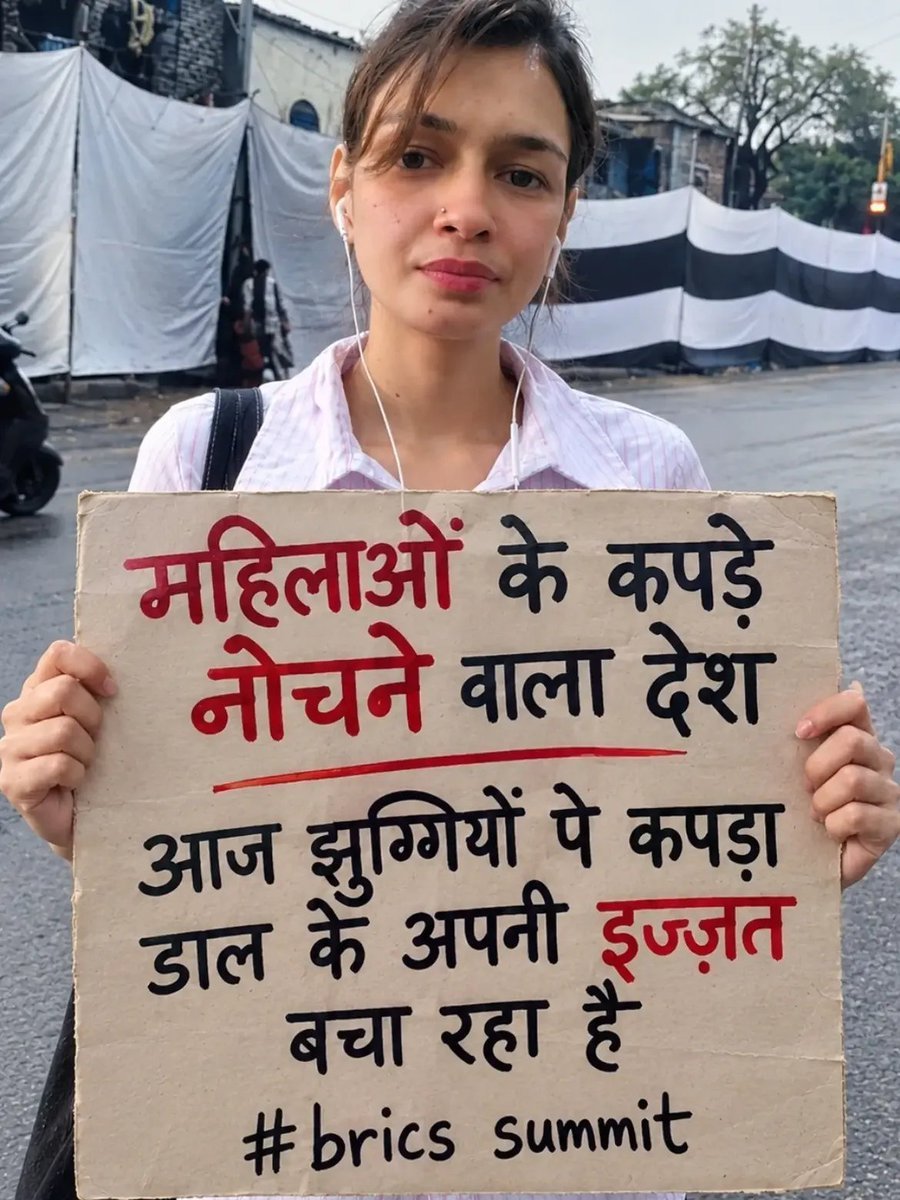 महिलाओं के कपड़े
नोचने वाला देश
आज झुग्गियों पे कपड़ा
डाल के अपनी इज्ज़त
बचा रहा है
#brics summit